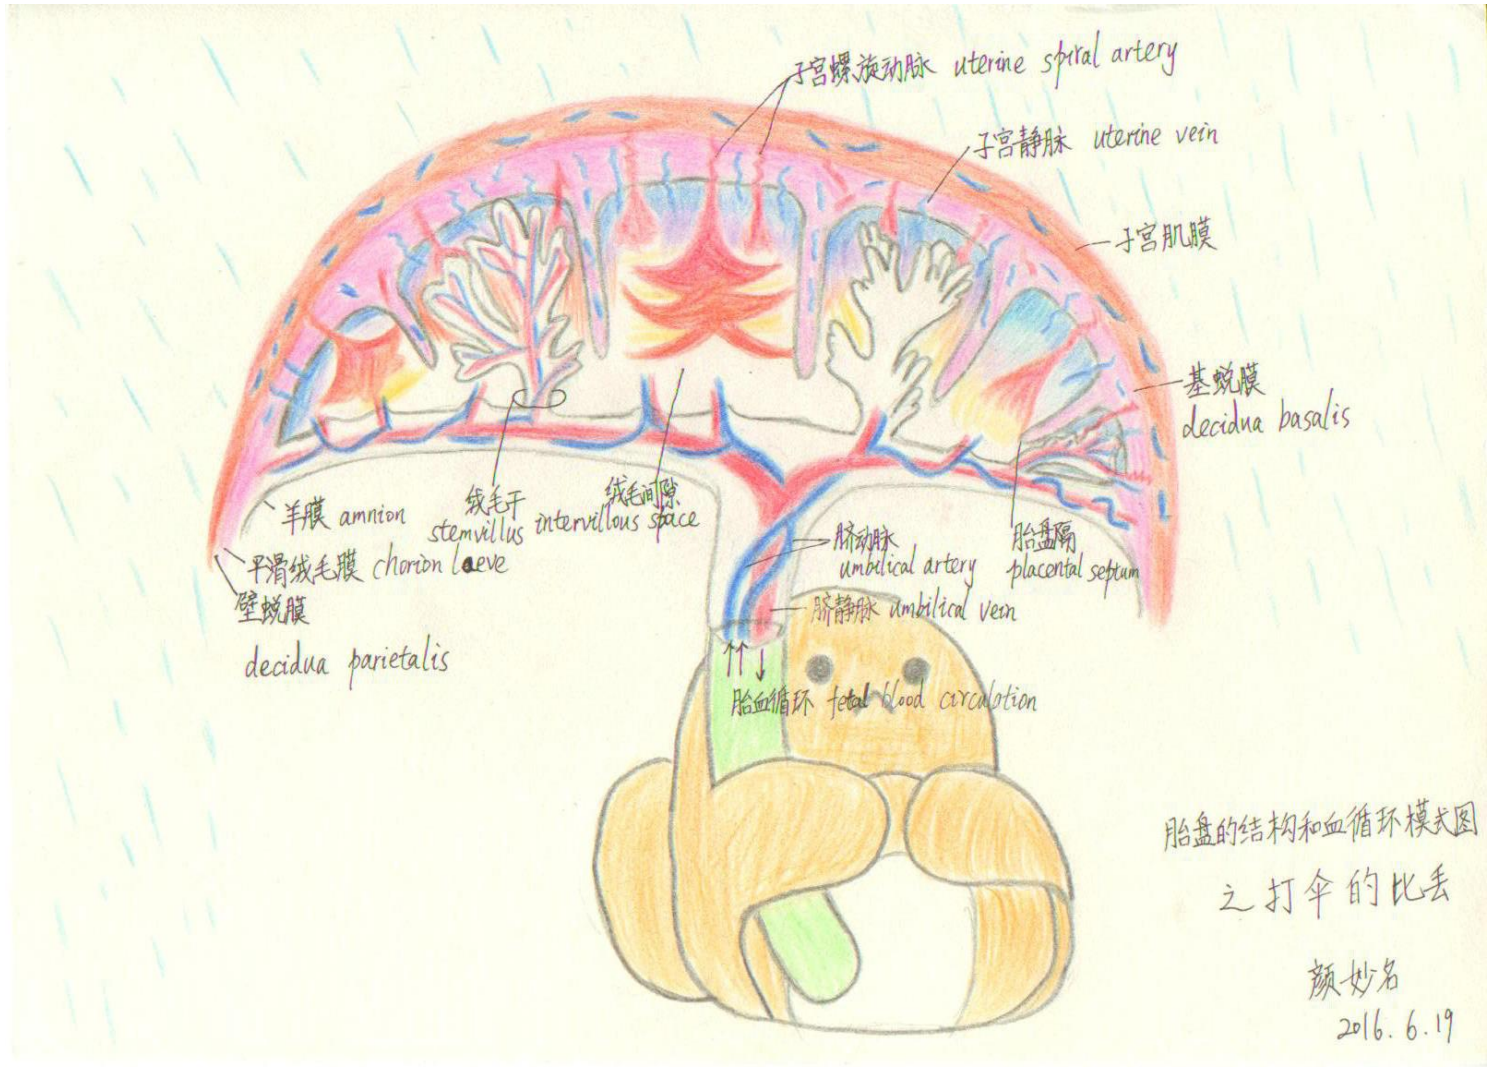 子宫螺旋动脉 uterine spiral artery
子宫静脉 uterine vein
子宫肌膜
基蜕膜
decidua basalis
羊膜 amnion
绒毛干
stemvillus
绒毛间隙
intervillous space
平滑绒毛膜 chorion laeve
壁蜕膜
decidua parietalis
脐动脉
umbilical artery
胎盘隔
placental septum
脐静脉 umbilical vein
胎血循环 fetal blood circulation
胎盘的结构和血循环模式图
之打伞的比丢
颜妙名
2016.6.19